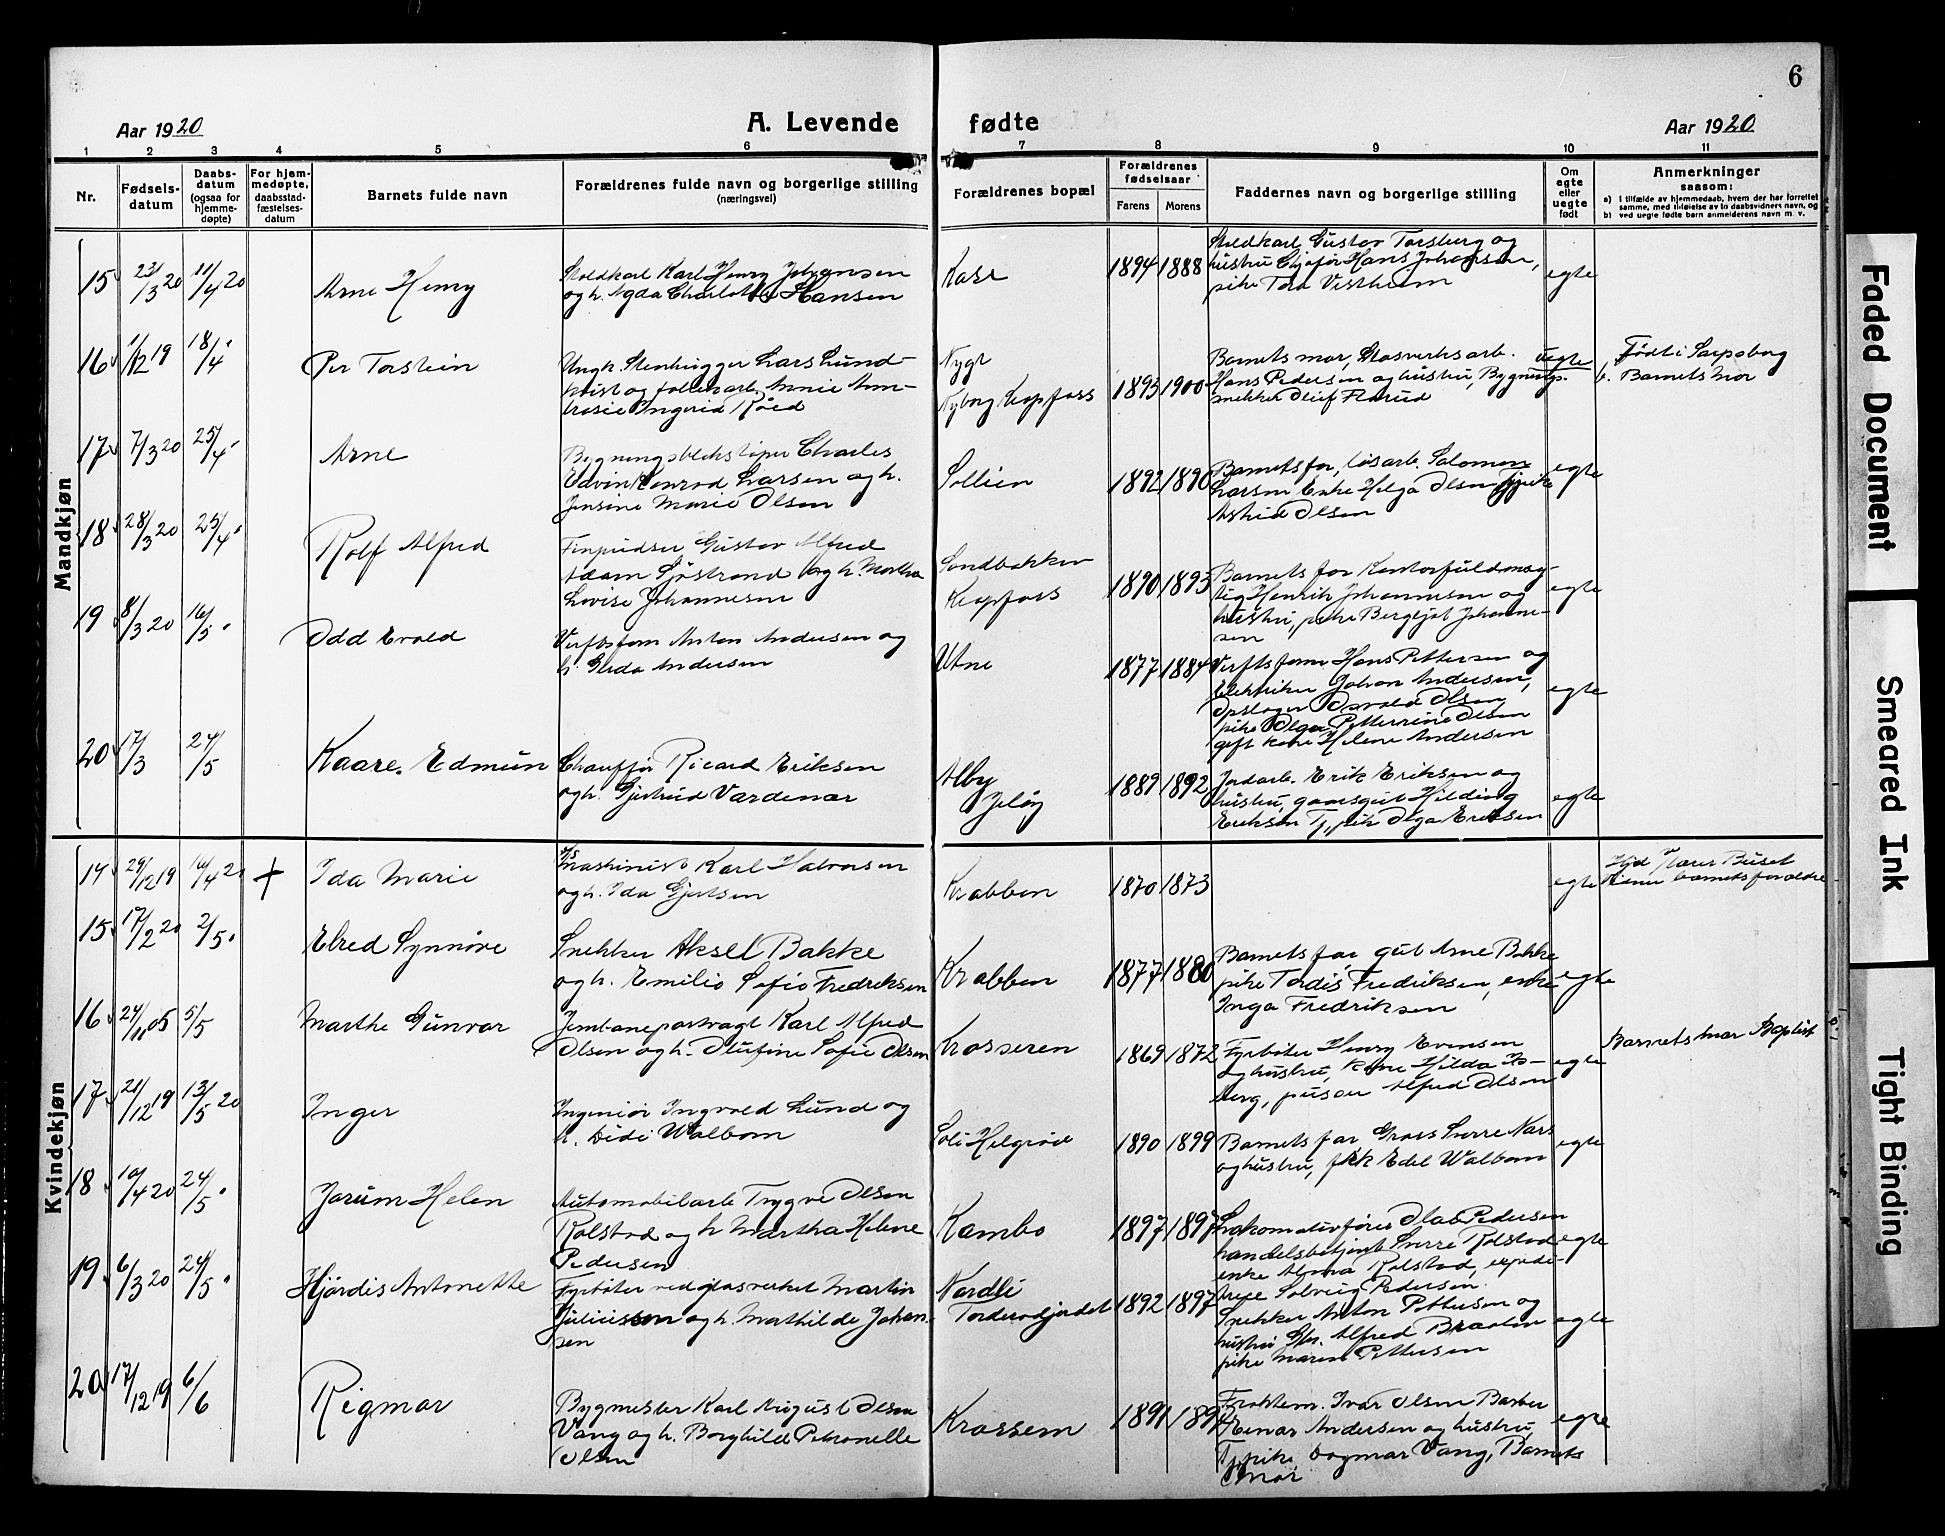 6
Aar 1920
A. Levende fødte
Aar 1920
1 2 3 4 5 6 7 8 9 10 11
Nr.
Fødsels-
datum
Daabs-
datum
(ogsaa for
hjemme-
døpte)
For hjem-
medøpte,
daabsstad-
fæstelses-
datum
Barnets fulde navn
Forældrenes fulde navn og borgerlige stilling
(næringsvei)
Forældrenes bopæl
Forældrenes
fødselsaar
Farens
Morens
Faddernes navn og borgerlige stilling
Om
egte
eller
uegte
født
Anmerkninger
saasom:
a) i tilfælde av hjemmedaab, hvem der har forrettet
samme, med tilføielse av to daabsvidners navn, og
b) ved uegte fødte barn anmelderens navn m. v.
Mandkjøn
15 23/3 20 11/4 20
Arne Henry
Karl Henry Johansen
og h. Agda Charlotte Hansen
1894 1888
Gustav Torsberg og
hustru Hans Johansen,
pike Tora Vestheim
egte
16 1/12 19 18/4
Per Torstein
Ungk. Stenhugger Lars Lund-
kvist og Annie Am-
brosie Ingerid Røed
Nygt
Nyborg Kapfoss
1895 1900
Barnets mor, Glasverksarb.
Hans Pedersen og hustru, Bygnings-
snekker Florud
uegte
Født i Sarpsborg
b. Barnets mor
17 7/3 20 25/4
Arne
Charles
Edvin Konrad Larsen og h.
Jensine Marie Olsen
Sollien
1892 1890
Barnets far, løsarb. Salomon
Larsen Enke Helga Olsen Tj.pike
Astrid Olsen
egte
18 28/3 20 25/4
Rolf Alfred
Finpudser Gustav Alfred
Adam Sjöstrand og h. Martha
Lovise Johannesen
Sandbakken
Kapfoss
1890 1893
Barnets far Kontorfuldmæg-
tig Henrik Johannesen og
hustru, pike Bergljot Johanne-
sen
egte
19 8/3 20 16/5
Odd Evald
Verftsform Anton Andersen og
h. Gerda Andersen
Utne
1877 1884
Verftsform Hans Pettersen og
Elektriker Johan Andersen,
Opslager Osvald Olsen
pike Olga Petternine Olsen
gift kone Helene Andersen
egte
20 17/3 24/5
Kaare. Edmun
Chauffør Ricard Eriksen
og h. Gjertrud Vardenær
Alby
Jeløy
1889 1892
Jordarb. Erik Eriksen og
hustru, gaardsgut Hilding
Eriksen Tj.pik Olga Eriksen
egte
Kvindekjøn
14 29/12 19 14/4 20 +
Ida Marie
Maskinist Karl Halvorsen
og h. Ida Gjertsen
Krabben
1870 1873
egte
barnets forældre
15 17/2 20 2/5
Elred Synnøve
Snekker Aksel Bakke
og h. Emilie Sofie Fredriksen
Krabben
1877 1880
Barnets far, gut Arne Bakke
pike Tordis Fredriksen, enke
Inga Fredriksen
egte
16 24/11 05 5/5
Marthe Gunvor
Jernbaneportvagt Karl Alfred
Olsen og h. Olufine Sofie Olsen
Krosseren
1869 1872
Fyrbøter Henry Evensen
og hustru, kone Hilda Is-
berg, Alfred Olsen
egte
Barnets mor Baptist
17 21/12 19 13/5 20
Inger
Ingeniør Ingvald Lund og
h. Didi Walbom
Soli Helgerød
1890 1899
Barnets far Gross Sverre Nars
og hustru, frk Edel Walbom
egte
18 10/4 20 24/5
Jorum Helen
Automobilarb Trygve Olsen
Rolstad og h Martha Helene
Pedersen
Kambo
1897 1897
Lokomotivfører Olaf Pedersen
handelsbetjent Sverre Rolstad
enke Alma Rolstad, expedi-
trise Solveig Pedersen
egte
19 6/3 20 24/5
Hjørdis Antonette
Fyrbøter ved glasverket Martin
Juliussen og h. Mathilde Johan-
sen
Nordli
Torderødjordet
1892 1897
Snekker Anton Pettersen og
hustru Alfred Braaten
pike Maren Pettersen
egte
20 17/12 19 6/6
Rigmor
Bygmester Karl August Olsen
Vang og h. Borghild Petronelle
Olsen
Krossern
1891 1894
Ivar Olsen Barber
Henar Andersen og hustru,
Tj.pike Dagmar Vang, Barnets
Mor
egte
Faded Document
Smeared Ink
Tight Binding